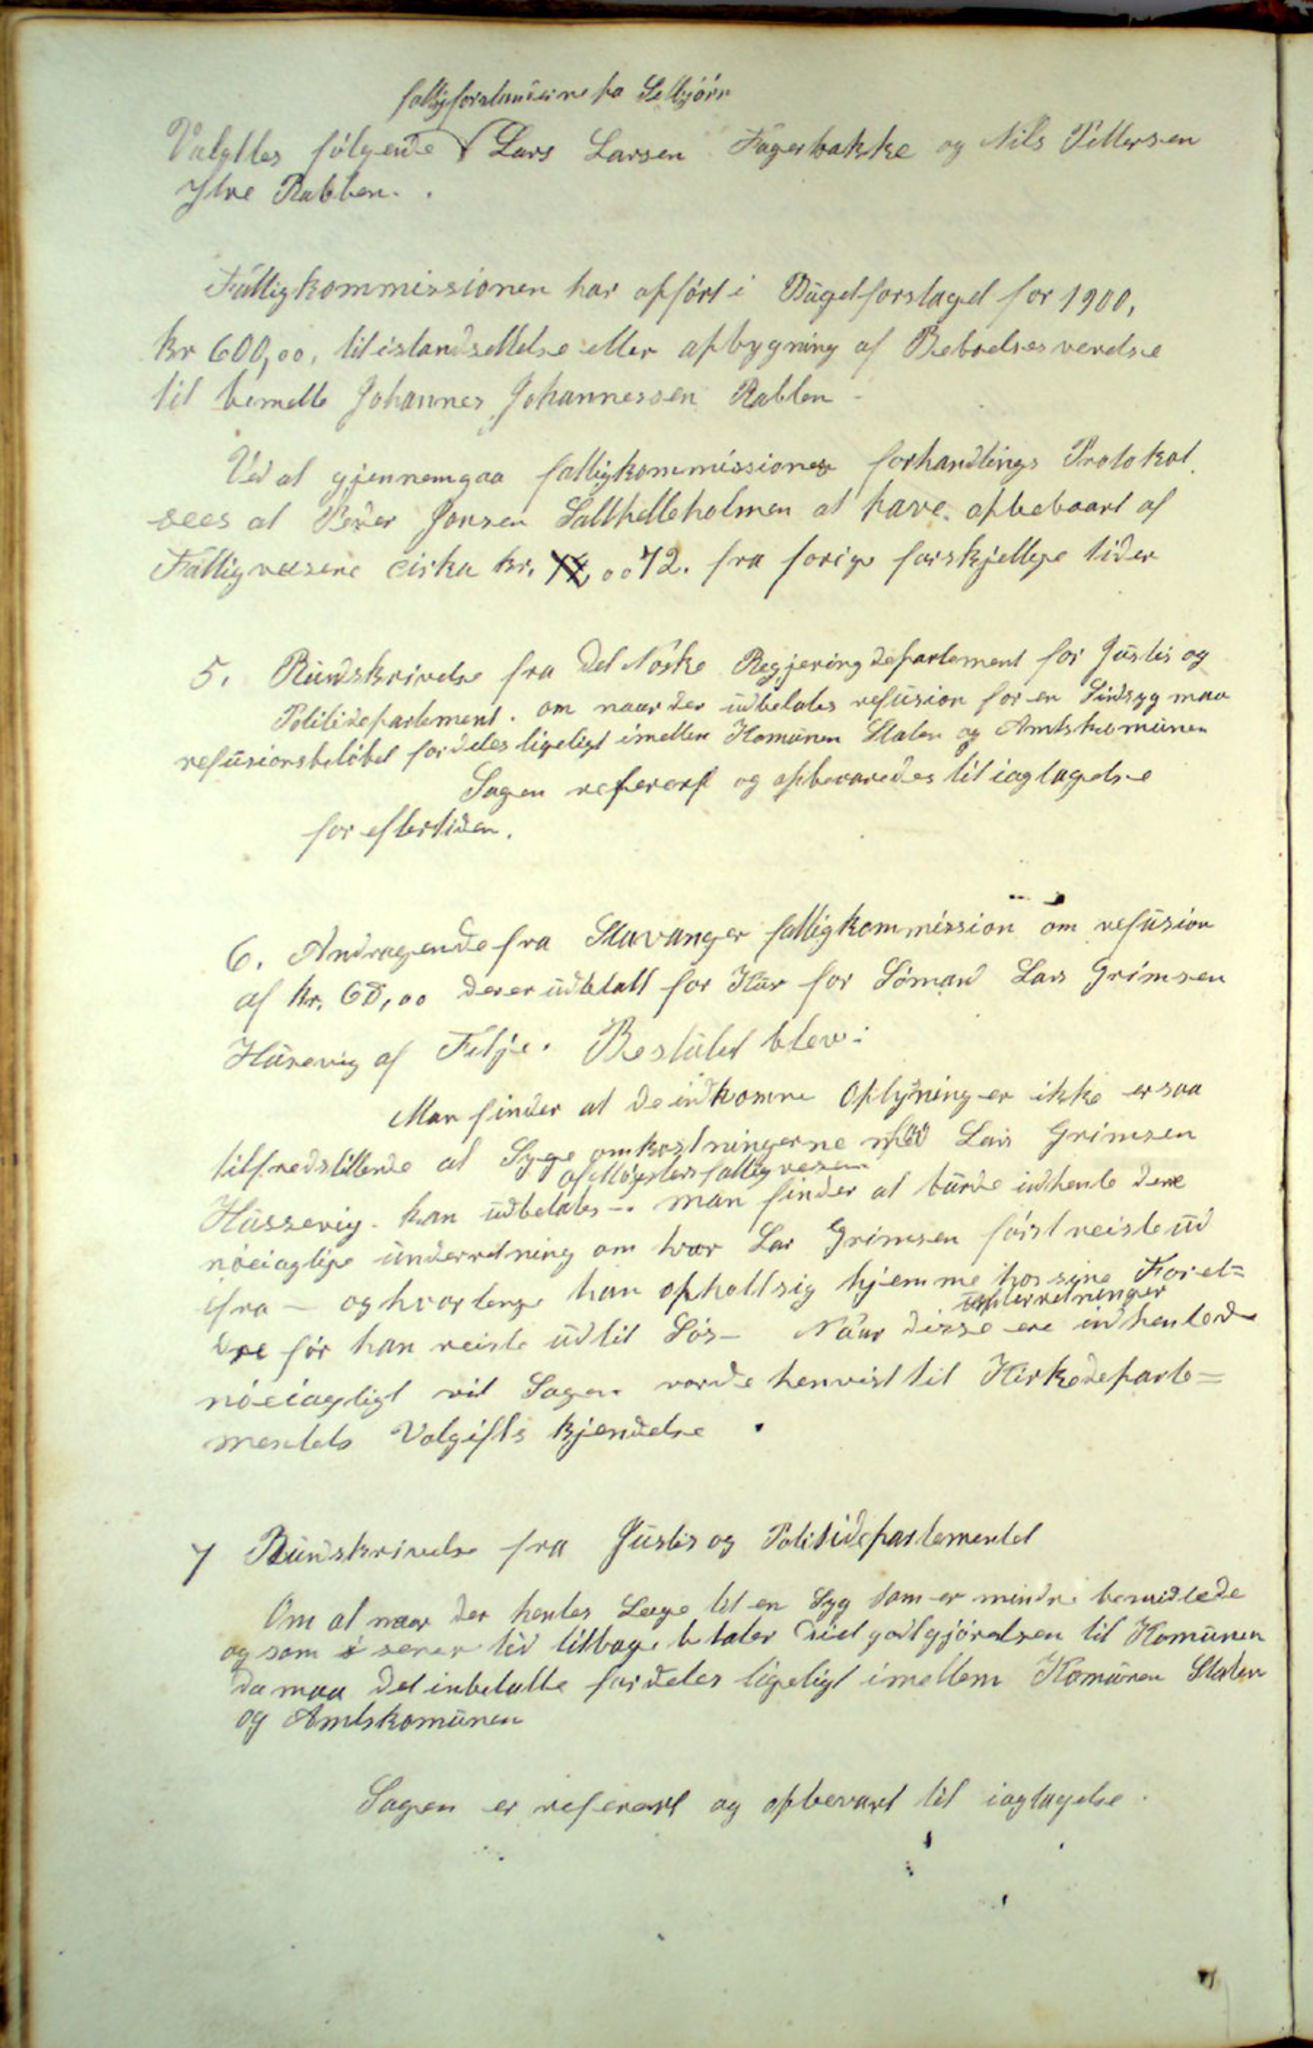 fattigforstanderne fra Selbjörn
Valgtes fölgende Lars Larsen Fagerbakke og Nils Pettersen
Ytre Rabben.
Fattigkommissionen har opfört i Büdgetforslaget for 1900,
kr 600,00, til istandsettelse eller opbygning af Beboelses verelse
til bemelte Johannes Johannessen Rabben
Ved at gjennemgaa fattigkommissiones forhandlings Protokol
sees at Peder Jonsen Salthelleholmen at have opbebaart af
Fattigvesene cirka kr. 72. fra forige forskjellige tider
5. Rundskrivelse fra Det Norske Regjering departement for Justis og
Politidepartement. om naar der udbetales refusion for en Sindsyg maa
refusionsbelöbet fordeles ligeligt imellem Komünen Staten og Amtskomünen
Sagen referert og opbevaredes til iagtagelse
for eftertiden.
6. Andragende fra Stavanger fattigkommission om refusion
af kr. 68,00 der er udbetalt for Kur for Sömand Lars Grimsen
Hüsevig af Fitje. Beslutet blev:
Man finder at de indkomne Oplysninger ikke er saa
tilfredstillende at Syge omkostningerne med Lars Grimsen
af Mögsters fattigvesen
Hüssevig. kan udbetales -. man finder at bürde indhente dere
nöeiagtige underretning om hvor Lar Grimsen först reiste üd
ifra - og hvorlenge han opholt sig hjemme hos sine Forel=
underretninger
dre för han reiste üd til Sös - Naar disse ere indhentede
nöeiagtigt vil Sagen vorde henvist til Kirkedeparte=
mentets Volgifts kjendelse.
7 Rundskrivelse fra Justis og Politidepartementet
Om at naar der hentes Læge til en Syg som er mindre bemidlede
og som i sener tid tilbage betaler üdgodtgjörelsen til Komünen
da maa det inbetalte fordeles ligeligt imellem Komünen Staten
og Amtskomünen
Sagen er referert og opbevart til iagtagelse.